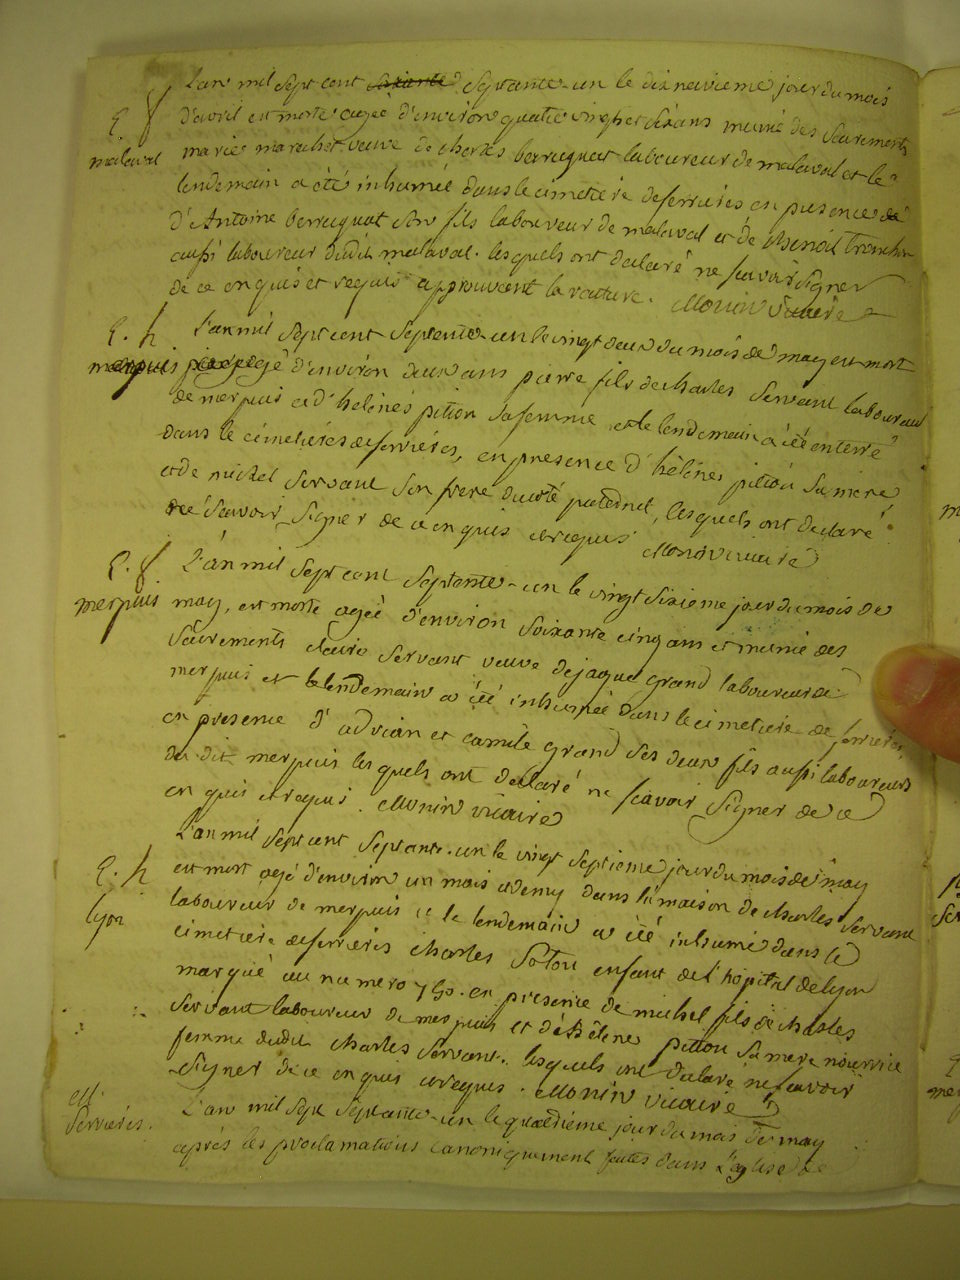 L'an mil sept cent soixante septante-un le dixneuvieme jour du mois
E. f. d'avril est morte agée d'environ quatre vingt et six ans munie des sacrements
malaval marie marechet veuve de charles berruquat laboureur de malaval et le
lendemain a été inhumée dans le cimetiere de ferrieres en presence de
d'Antoine berruquat son fils laboureur de malaval et de Benoit Tronchon
aussi laboureur dudit malaval. lesquels ont declaré ne sçavoir signer
de ce enquis et requis approuvant la rature. Monin vicaire
E. h. L'an mil sept cent septente-un le vingt deux du mois de may est mort
merpuis agé d'environ deux ans pierre fils de charles Servant laboureur
de merpuis et d'helenes pition sa femme et le lendemain a été enterré
dans le cimetieres de ferrieres, en presence d'hélénes pition sa mere
et de michel Servant son frere du coté paternel, lesquels ont declaré
ne sçavoir signer de ce enquis et requis Monin vicaire
E. f. L'an mil sept cent septente-un le vingt sixieme jour du mois de
merpuis may, est morte agée d'environ soixante cinq ans et munie des
sacrements claire servant veuve de jaque grand laboureur de
merpuis et le lendemain a été inhumée dans le cimetiere de ferrieres
en presence d'adrian et camile grand ses deux fils aussi laboureurs
du dit merpuis lesquels ont declaré ne sçavoir signer de ce
enquis et requis. Monin vicaire
L'an mil sept cent septante-un le vingt septieme jour du mois de may
E. h. est mort agé d'environ un mois et demy dans la maison de charles servant
lyon laboureur de merpuis et le lendemain a été inhumé dans le
cimetiere de ferrieres charles enfant de l'hopital de lyon
marqué au numero en presence de michel fils de charles
servant laboureur de merpuis et d'hélene pition sa mere nourrice
femme dudit charles servant. lesquels ont declaré ne scavoir
signer de ce enquis et requis. Monin vicaire
ferrieres. L'an mil sept septante-un le jour du mois de may
aprés les proclamations canoniquement faites dans l'eglise de